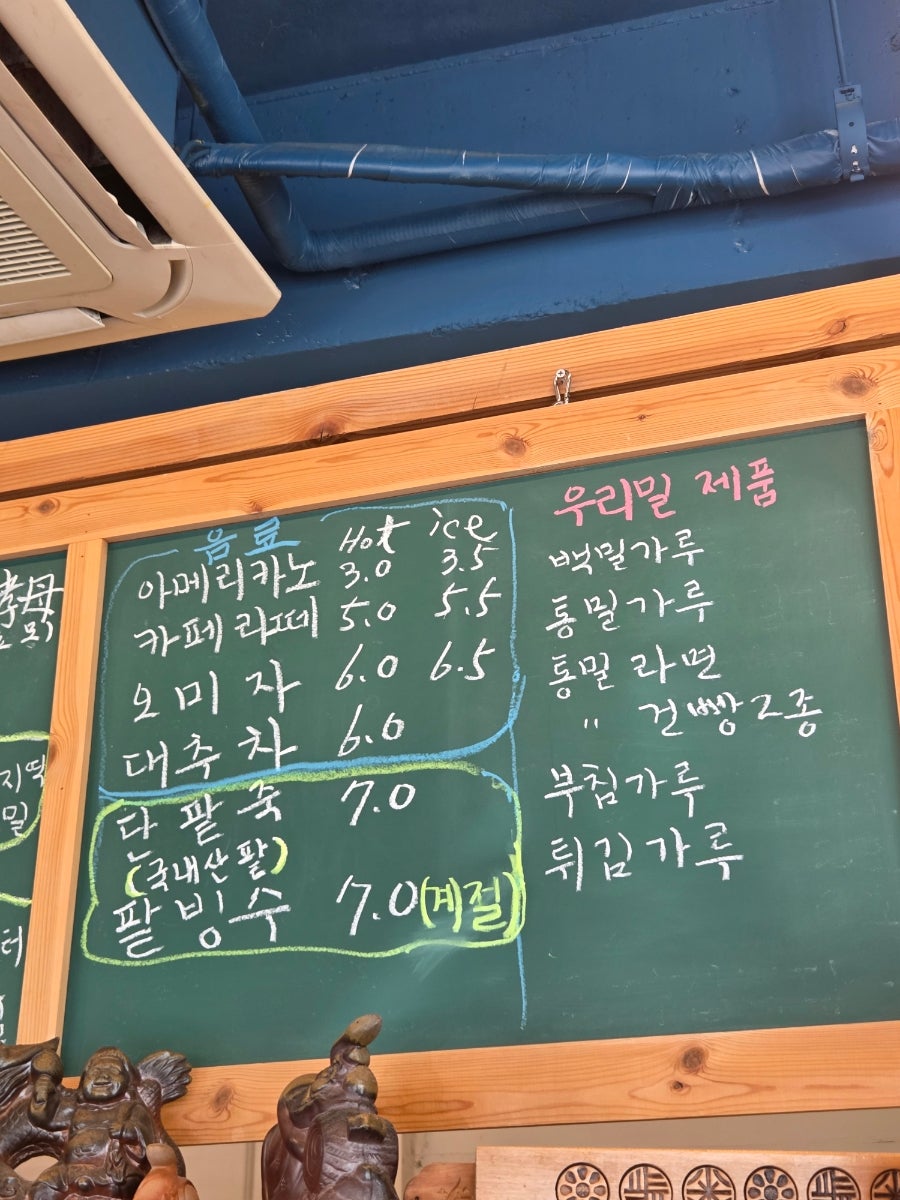 孝母
지떡
밀
터
음료 Hot ice
아메리카노 3.0 3.5
카페라떼 5.0 5.5
오미자 6.0 6.5
대추차 6.0
단팥죽 7.0
(국내산팥)
팥빙수 7.0 (계절)
우리밀 제품
백밀가루
통밀가루
통밀 라면
" 건빵 2종
부침가루
튀김가루